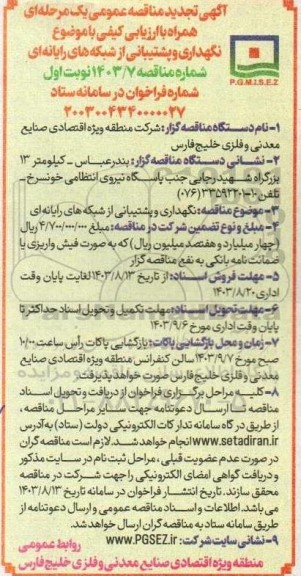 آگهی تجدید مناقصه عمومی یک مرحله ای
همراه با ارزیابی کیفی با موضوع
نگهداری و پشتیبانی از شبکه های رایانه ای
شماره مناقصه ۱۴۰۳/۷ نوبت اول
شماره فراخوان در سامانه ستاد
۲۰۰۳۰۰۴۳۴۰۰۰۰۰۲۷
P.G.M.I.S.E.Z
۱- نام دستگاه مناقصه گزار: شرکت منطقه ویژه اقتصادی صنایع
معدنی و فلزی خلیج فارس
۲- نشانی دستگاه مناقصه گزار: بندرعباس - کیلومتر ۱۳
بزرگراه شهید رجایی جنب پاسگاه نیروی انتظامی خونسرخ -
تلفن: ۱۰-۳۳۵۹۳۲۰۰ (۰۷۶)
۳- موضوع مناقصه: نگهداری و پشتیبانی از شبکه های رایانه ای
۴- مبلغ و نوع تضمین شرکت در مناقصه: مبلغ ۴/۷۰۰/۰۰۰/۰۰۰ ریال
(چهار میلیارد و هفتصد میلیون ریال) که به صورت فیش واریزی یا
ضمانت نامه بانکی به نفع مناقصه گزار
۵- مهلت فروش اسناد: از تاریخ ۱۴۰۳/۸/۱۳ لغایت پایان وقت
اداری ۱۴۰۳/۸/۲۰
۶- مهلت تحویل اسناد: مهلت تکمیل و تحویل اسناد حداکثر تا
پایان وقت اداری مورخ ۱۴۰۳/۹/۶
۷- زمان و محل بازگشایی پاکات: بازگشایی پاکات رأس ساعت ۱۰/۰۰
صبح مورخ ۱۴۰۳/۹/۷ سالن کنفرانس منطقه ویژه اقتصادی صنایع
معدنی و فلزی خلیج فارس صورت خواهد پذیرفت.
۸- کلیه مراحل برگزاری فراخوان از دریافت و تحویل اسناد
مناقصه تا ارسال دعوتنامه جهت سایر مراحل مناقصه،
از طریق درگاه سامانه تدارکات الکترونیکی دولت (ستاد) به آدرس
www.setadiran.ir انجام خواهد شد. لازم است مناقصه گران
در صورت عدم عضویت قبلی، مراحل ثبت نام در سایت مذکور
و دریافت گواهی امضای الکترونیکی را جهت شرکت در مناقصه
محقق سازند. تاریخ انتشار فراخوان در سامانه تاریخ ۱۴۰۳/۸/۱۳
می باشد. اطلاعات و اسناد مناقصه عمومی و ارسال دعوتنامه از
طریق سامانه ستاد به مناقصه گران ارسال خواهد شد.
۹- نشانی سایت شرکت: www.PGSEZ.ir
روابط عمومی
منطقه ویژه اقتصادی صنایع معدنی و فلزی خلیج فارس